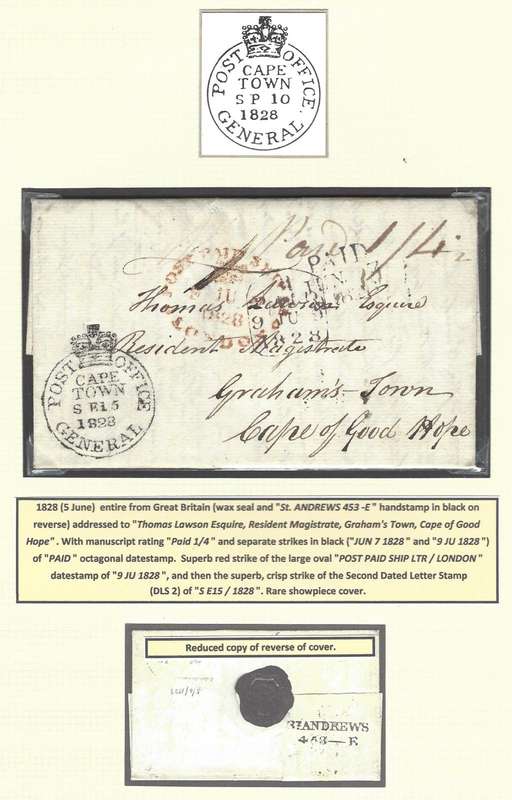 POST OFFICE
CAPE
TOWN
S P 10
1828
GENERAL
Paid 1/4
PAID
JUN 7
POST PAID SHIP
9 JU
1828
LONDON
9 JU
1828
Thomas Lawson Esquire
Resident Magistrate
Graham's Town
Cape of Good Hope
POST OFFICE
CAPE
TOWN
S E15
1828
GENERAL
1828 (5 June) entire from Great Britain (wax seal and "St. ANDREWS 453 -E" handstamp in black on
reverse) addressed to "Thomas Lawson Esquire, Resident Magistrate, Graham's Town, Cape of Good
Hope". With manuscript rating "Paid 1/4" and separate strikes in black ("JUN 7 1828" and "9 JU 1828")
of "PAID" octagonal datestamp. Superb red strike of the large oval "POST PAID SHIP LTR / LONDON"
datestamp of "9 JU 1828", and then the superb, crisp strike of the Second Dated Letter Stamp
(DLS 2) of "S E15 / 1828". Rare showpiece cover.
Reduced copy of reverse of cover.
ST ANDREWS
453—E